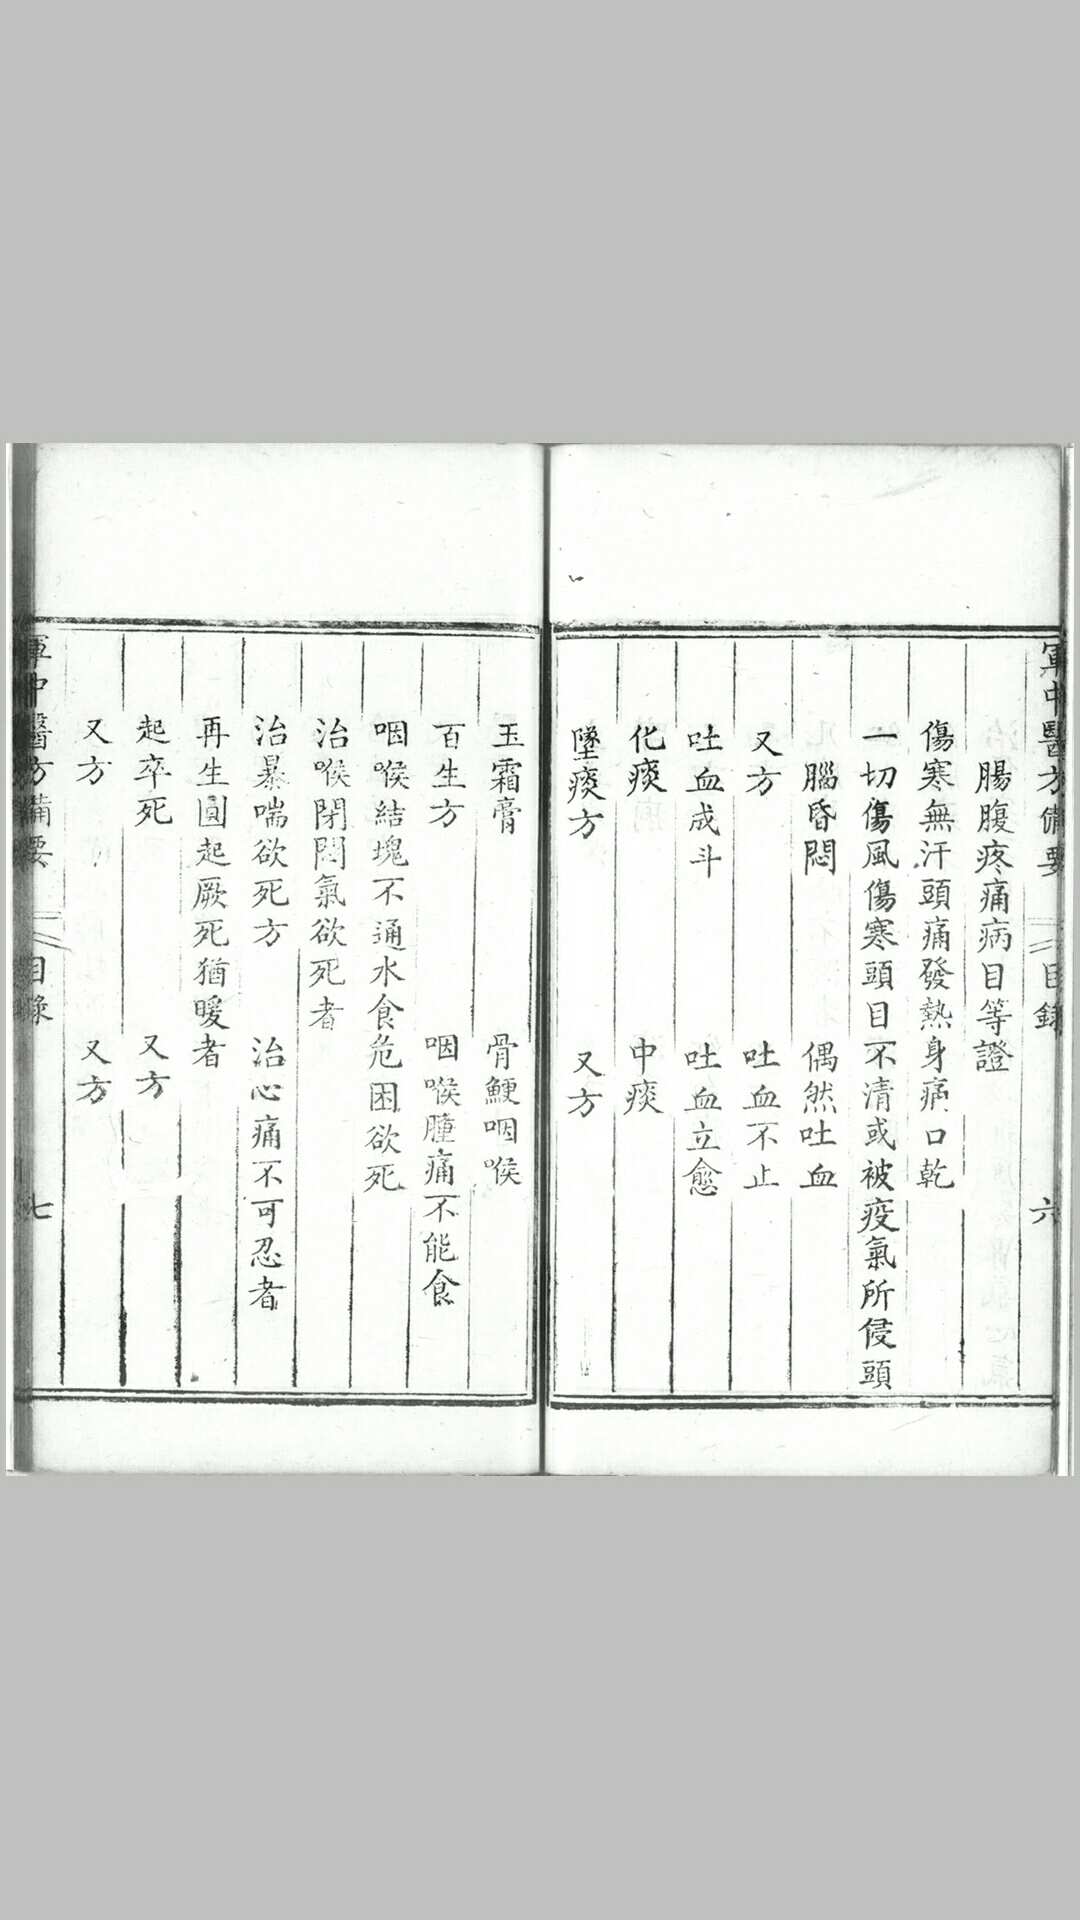 軍中醫方備要
目錄
六
腸腹疼痛病目等證
傷寒無汗頭痛發熱身痛口乾
一切傷風傷寒頭目不清或被疫氣所侵頭
腦昏悶
偶然吐血
又方
吐血不止
吐血成斗
吐血立愈
化痰
中痰
墜痰方
又方
玉霜膏
骨鯁咽喉
百生方
咽喉腫痛不能食
咽喉結塊不通水食危困欲死
治喉閉悶氣欲死者
治暴喘欲死方
治心痛不可忍者
再生圓起厥死猶暖者
起卒死
又方
又方
又方
軍中醫方備要
目錄
七